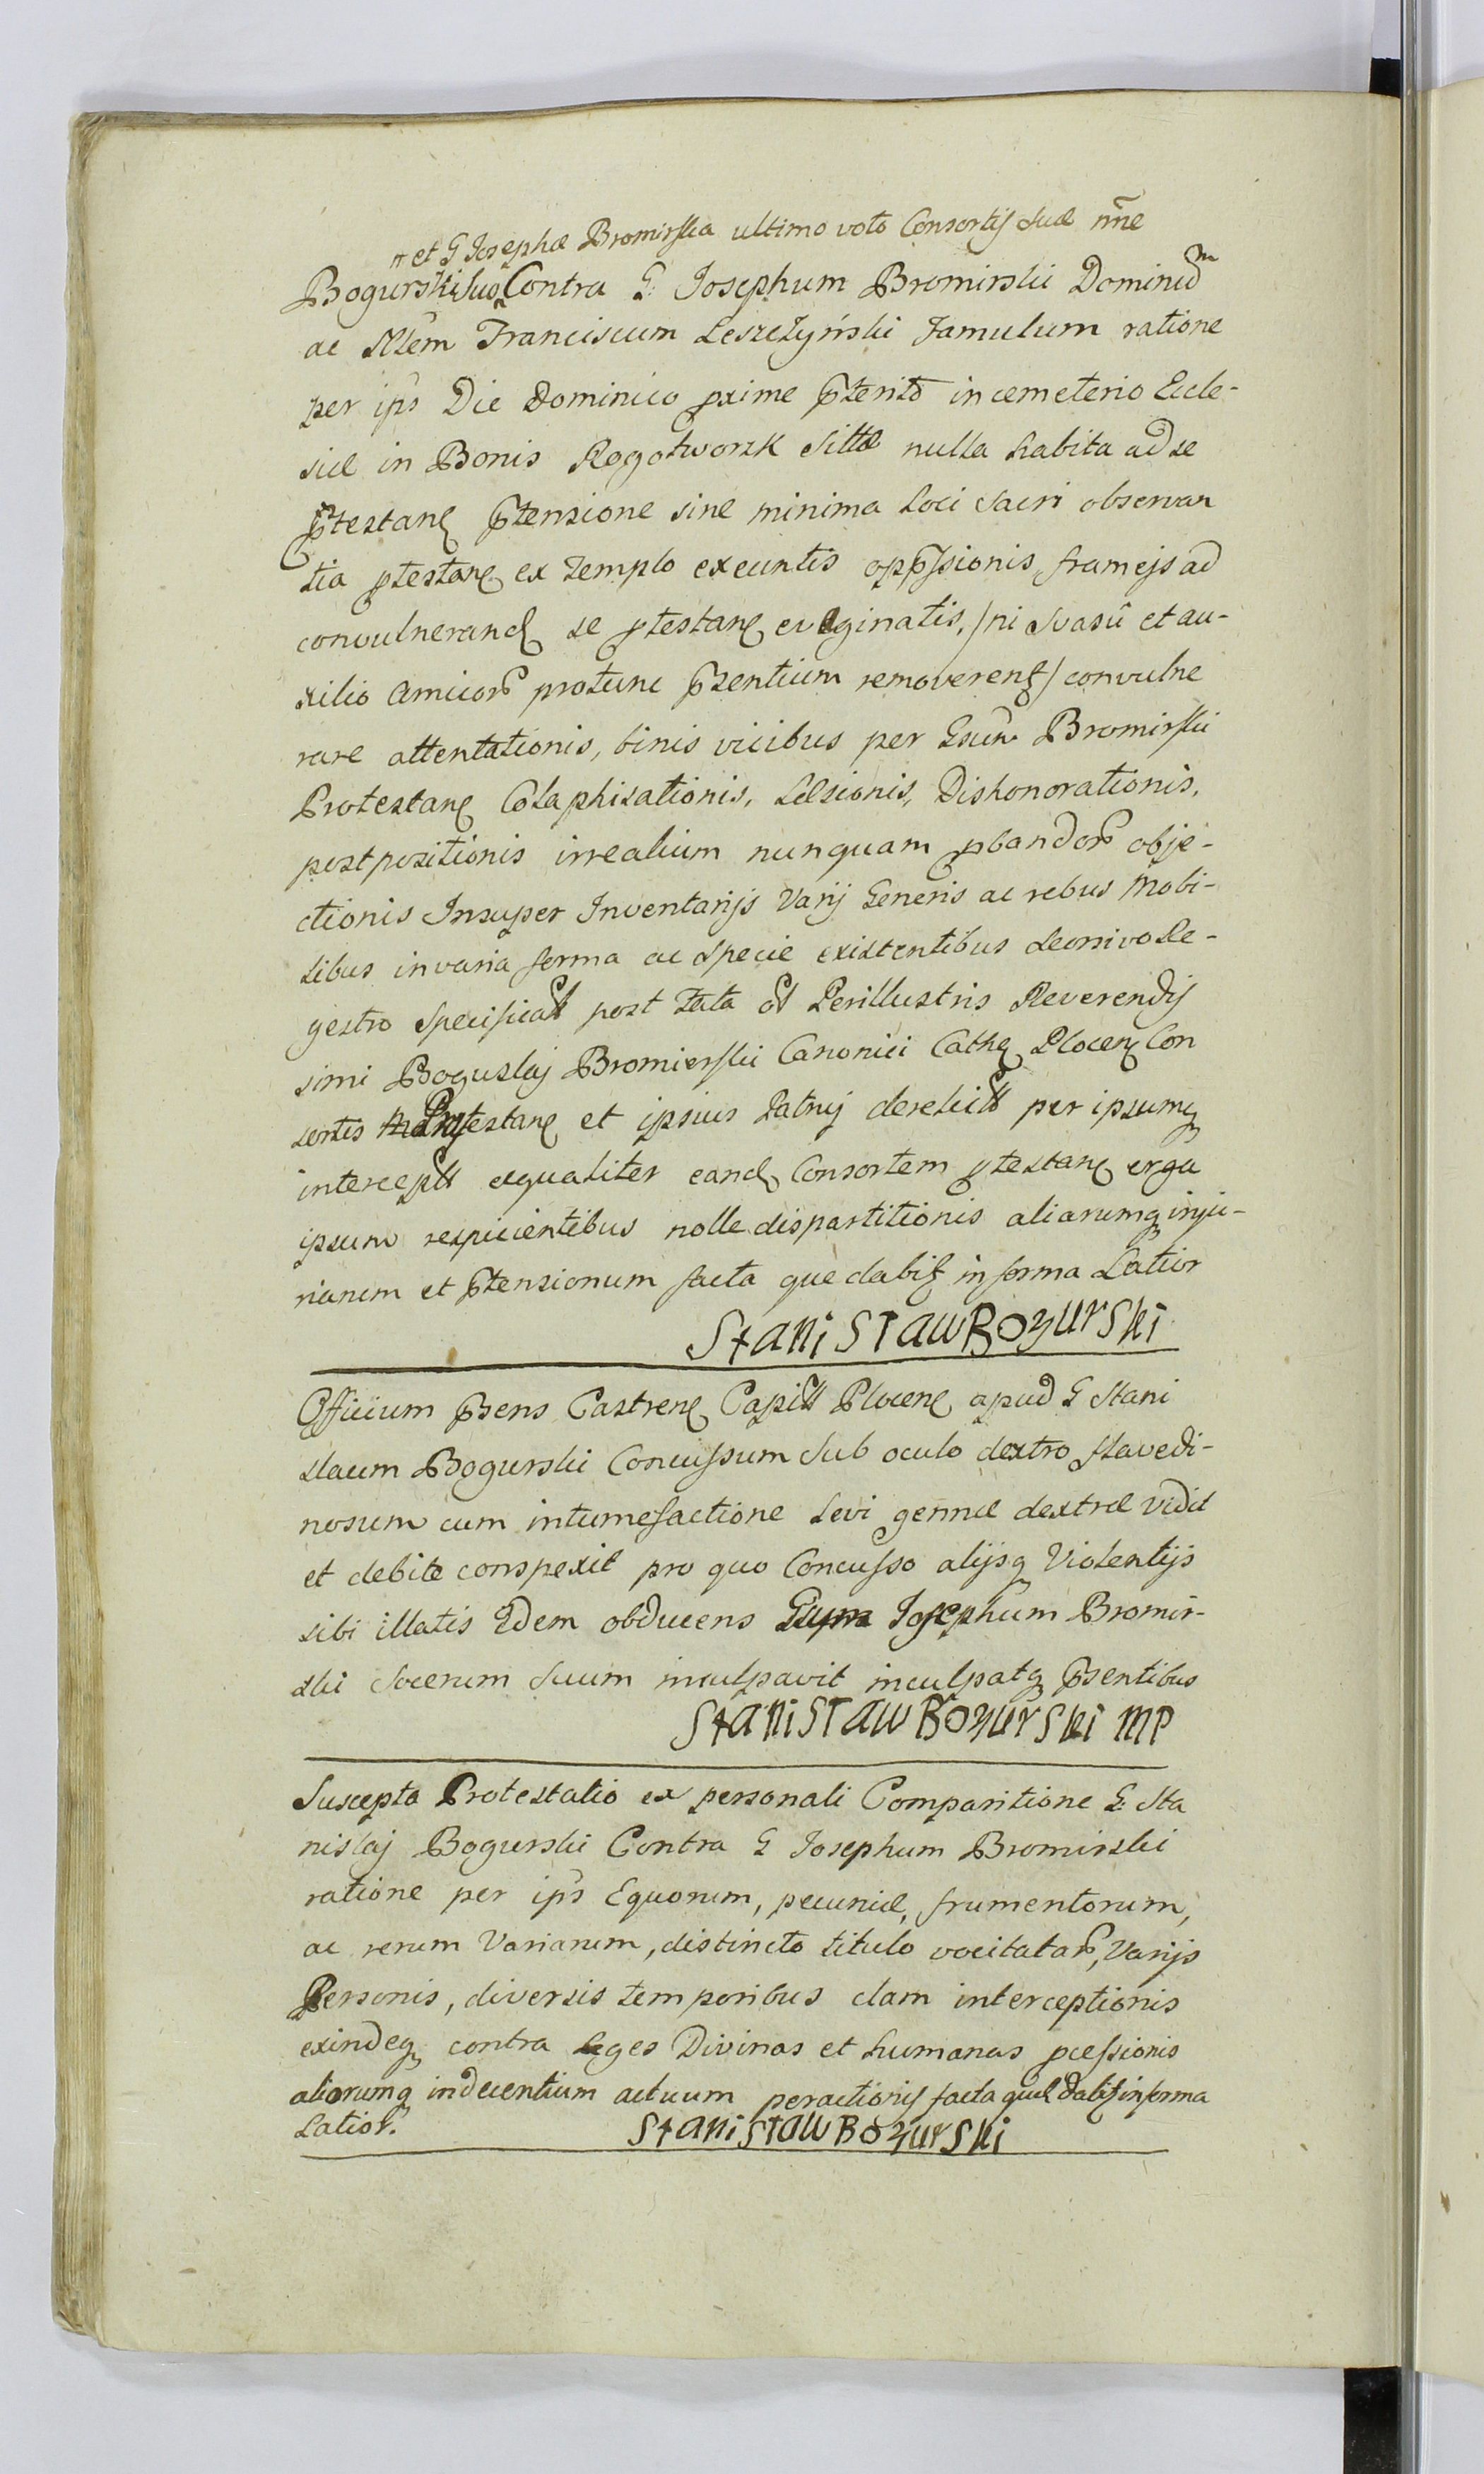 et G Josephæ Bromirska ultimo voto Consortis suæ nne
Bogurski suo Contra G: Josephum Bromirski Dominum
ac Nlem Franciscum Leszczyński Famulum ratione
per ips Die Dominico pxime pterito in cemeterio Eccle-
siæ in Bonis Rogotworsk sittæ nulla habita ad se
ptestan ptensione sine minima Loci sacri observan
tia ptestan ex templo exeuntis oppssionis frameis ad
convulnerand se ptestan evaginatis, /ni svasu et au-
xilio amicor protunc psentium removerent/ convulne
rare attentationis, binis vicibus per Gsum Bromirski
Protestan Colaphisationis, Læsionis, Dishonorationis,
postpositionis irrealium nunquam pbandor obje-
ctionis Insuper Inventarijs Varij Generis ac rebus Mobi-
libus in varia forma ac specie existentibus deorsivo Re-
gestro specificatt post fata Perillustris Reverendis
simi Boguslaj Bromierski Canonici Cathe Plocen Con
sortis Protestan et ipsius Patruj derelictt per ipsumq
interceptt æqualiter eand Consortem ptestan erga
ipsum respicientibus nolle dispartitionis aliarumq inju-
riarum et ptensionum facta que dabit in forma Latior
Stanisław Bogurski
Officium psens Castren Capitt Plocen apud G Stani
slaum Bogurski Concussum sub oculo dextro flavedi-
nosum cum intumefactione levi gennæ dextræ vidit
et debite conspexit pro quo Concusso alijsq Violentijs
sibi illatis Idem obducens Gsum Josephum Bromir-
ski socerum suum inculpavit inculpatq psentibus
Stanisław Bogurski mp
Suscepta Protestatio ex personali Comparitione G: Sta
nislaj Bogurski Contra G Josephum Bromirski
ratione per ips Equorum, pecuniæ, frumentorum,
ac rerum Variarum, distincto titulo vocitatar, Varijs
Personis, diversis temporibus clam interceptionis
exindeq contra leges Divinas et humanas pcessionis
aliorumq indecentium actuum peractionis facta quæ dabit in forma
Latior.
Stanisław Bogurski